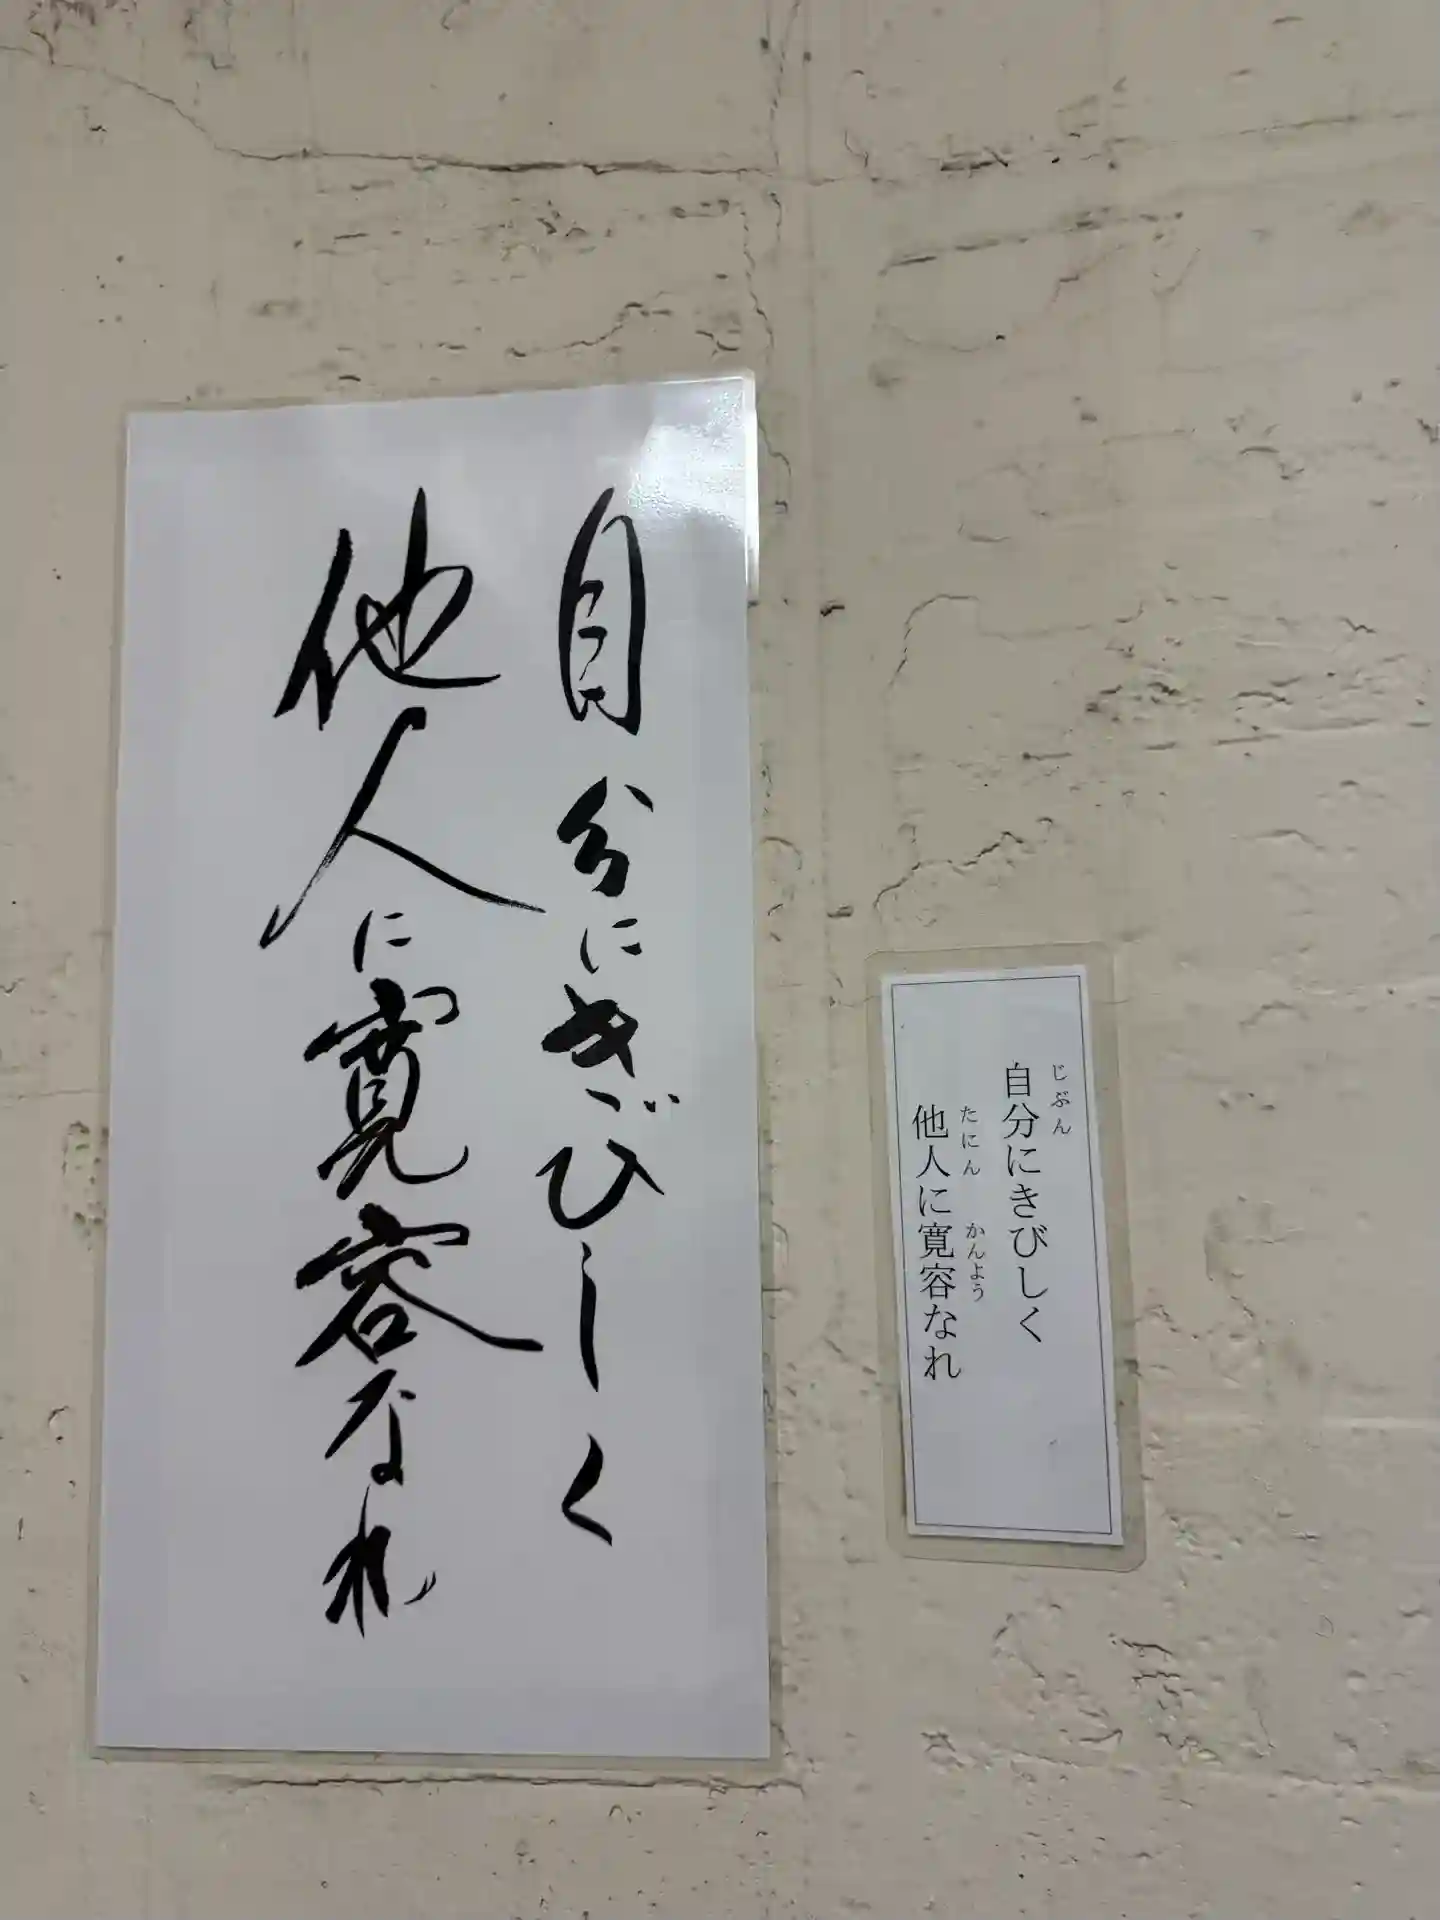 自分にきびしく
他人に寛容なれ
じぶん
自分にきびしく
たにん かんよう
他人に寛容なれ